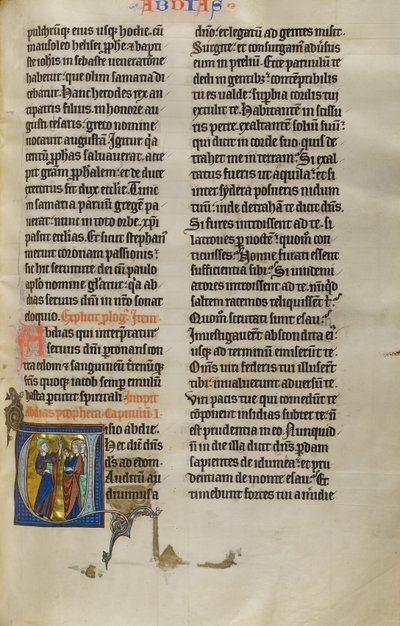 ABDIAS
pulchrūq; eius usq; hodie. cū
mausoleo helisei pphe. ⁊ bapti
ste iohis in sebaste ueneratione
habetur. que olim samaria di
cebatur. Hanc herodes rex an
tipatris filius. in honore au
gusti cesaris. greco nomine
uocauit augustā. Igitur q̄a
centū ꝓphas saluauerat. acce
pit grām ꝓphalem. et de duce
exercitus fit dux ecclīe. Tunc
in samaria paruū gregē pa
uerat. nunc in toto orbe xp̄i
pascit ecclīas. Et sicut stephan⁹
meruit coronam passionis:
sic hic seruitute dei cū paulo
apl̄o nomine glat̄ur. q̄a ab
dias seruus dn̄i in nr̄o sonat
eloquio. Explicit ꝓlog⁹. Item
Abdias qui interpretatur
seruus dn̄i ꝑsonans con
tra edom ⁊ sanguineū terrenūq;
fr̄is quoq; iacob semꝑ emulū
hasta ꝑcutit spiritali. Incipit
abdias ꝓpheta. Capitulū I
Visio abdie.
Hec dic̄ dn̄s
ds̄ ad edom.
Auditū au
diuimus a
dn̄o: et legatū ad gentes misit.
Surgite. et consurgam⁹ aduīsus
eum in preliū. Ecce paruulū te
dedi in gentib;: contēptibilis
tu es ualde: suꝑbia cordis tui
extulit te. Habitantē in scissu
ris petre. exaltantē soliū suū:
qui dicit in corde suo. quis de
trahet me in terram: Si exal
tatus fueris ut aquila: et si
inter sydera posueris nidum
tuū: inde detrahā te dicit dn̄s.
Si fures introissent ad te. si
latrones ꝑ noctē: quom̄ con
ticuisses: Nonne furati essent
sufficientia sibi: Si uindemi
atores introissent ad te. nūqid
saltem racemos reliquissent t:
Quom̄ scrutati sunt esau:
Inuestigauer̄t abscondita ei⁹:
usq; ad terminū emiserūt te.
Om̄s uiri federis tui illuser̄t
tibi. inualuerunt aduersū te.
Viri pacis tue qui comedūt te
cū ponent insidias subter te: n̄
est prudentia in eo. Nunquid
n̄ in die illa dicit dn̄s. ꝑdam
sapientes de idumea: et pru
dentiam de monte esau: Et
timebunt fortes tui a meridie